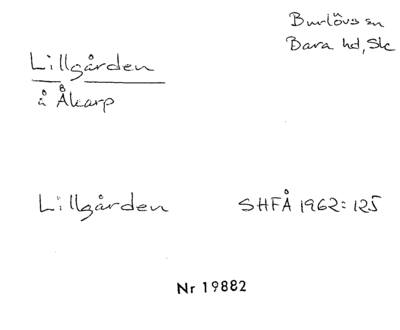 Burlövs sn
Bara hd, Sk
Lillgården
å Åkarp
Lillgården SHFÅ 1962:125
Nr 19882